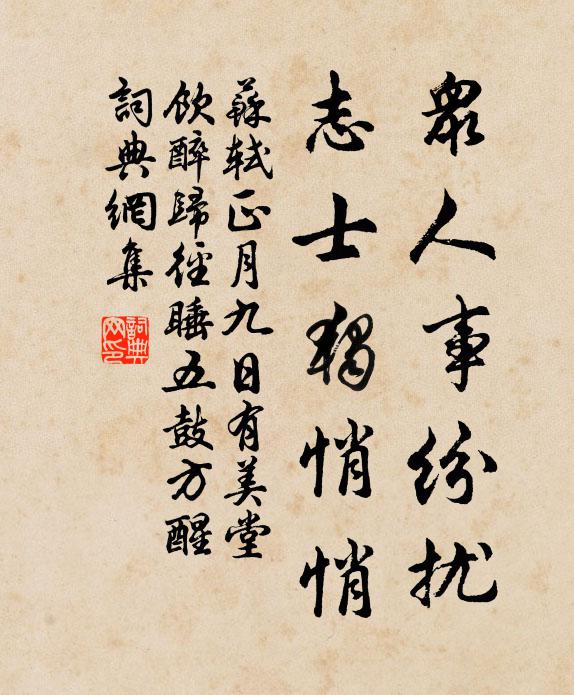 眾人事紛擾
志士獨悄悄
蘇軾正月九日有美堂
飲醉歸徑睡五鼓方醒
詞典網集
詞典網印